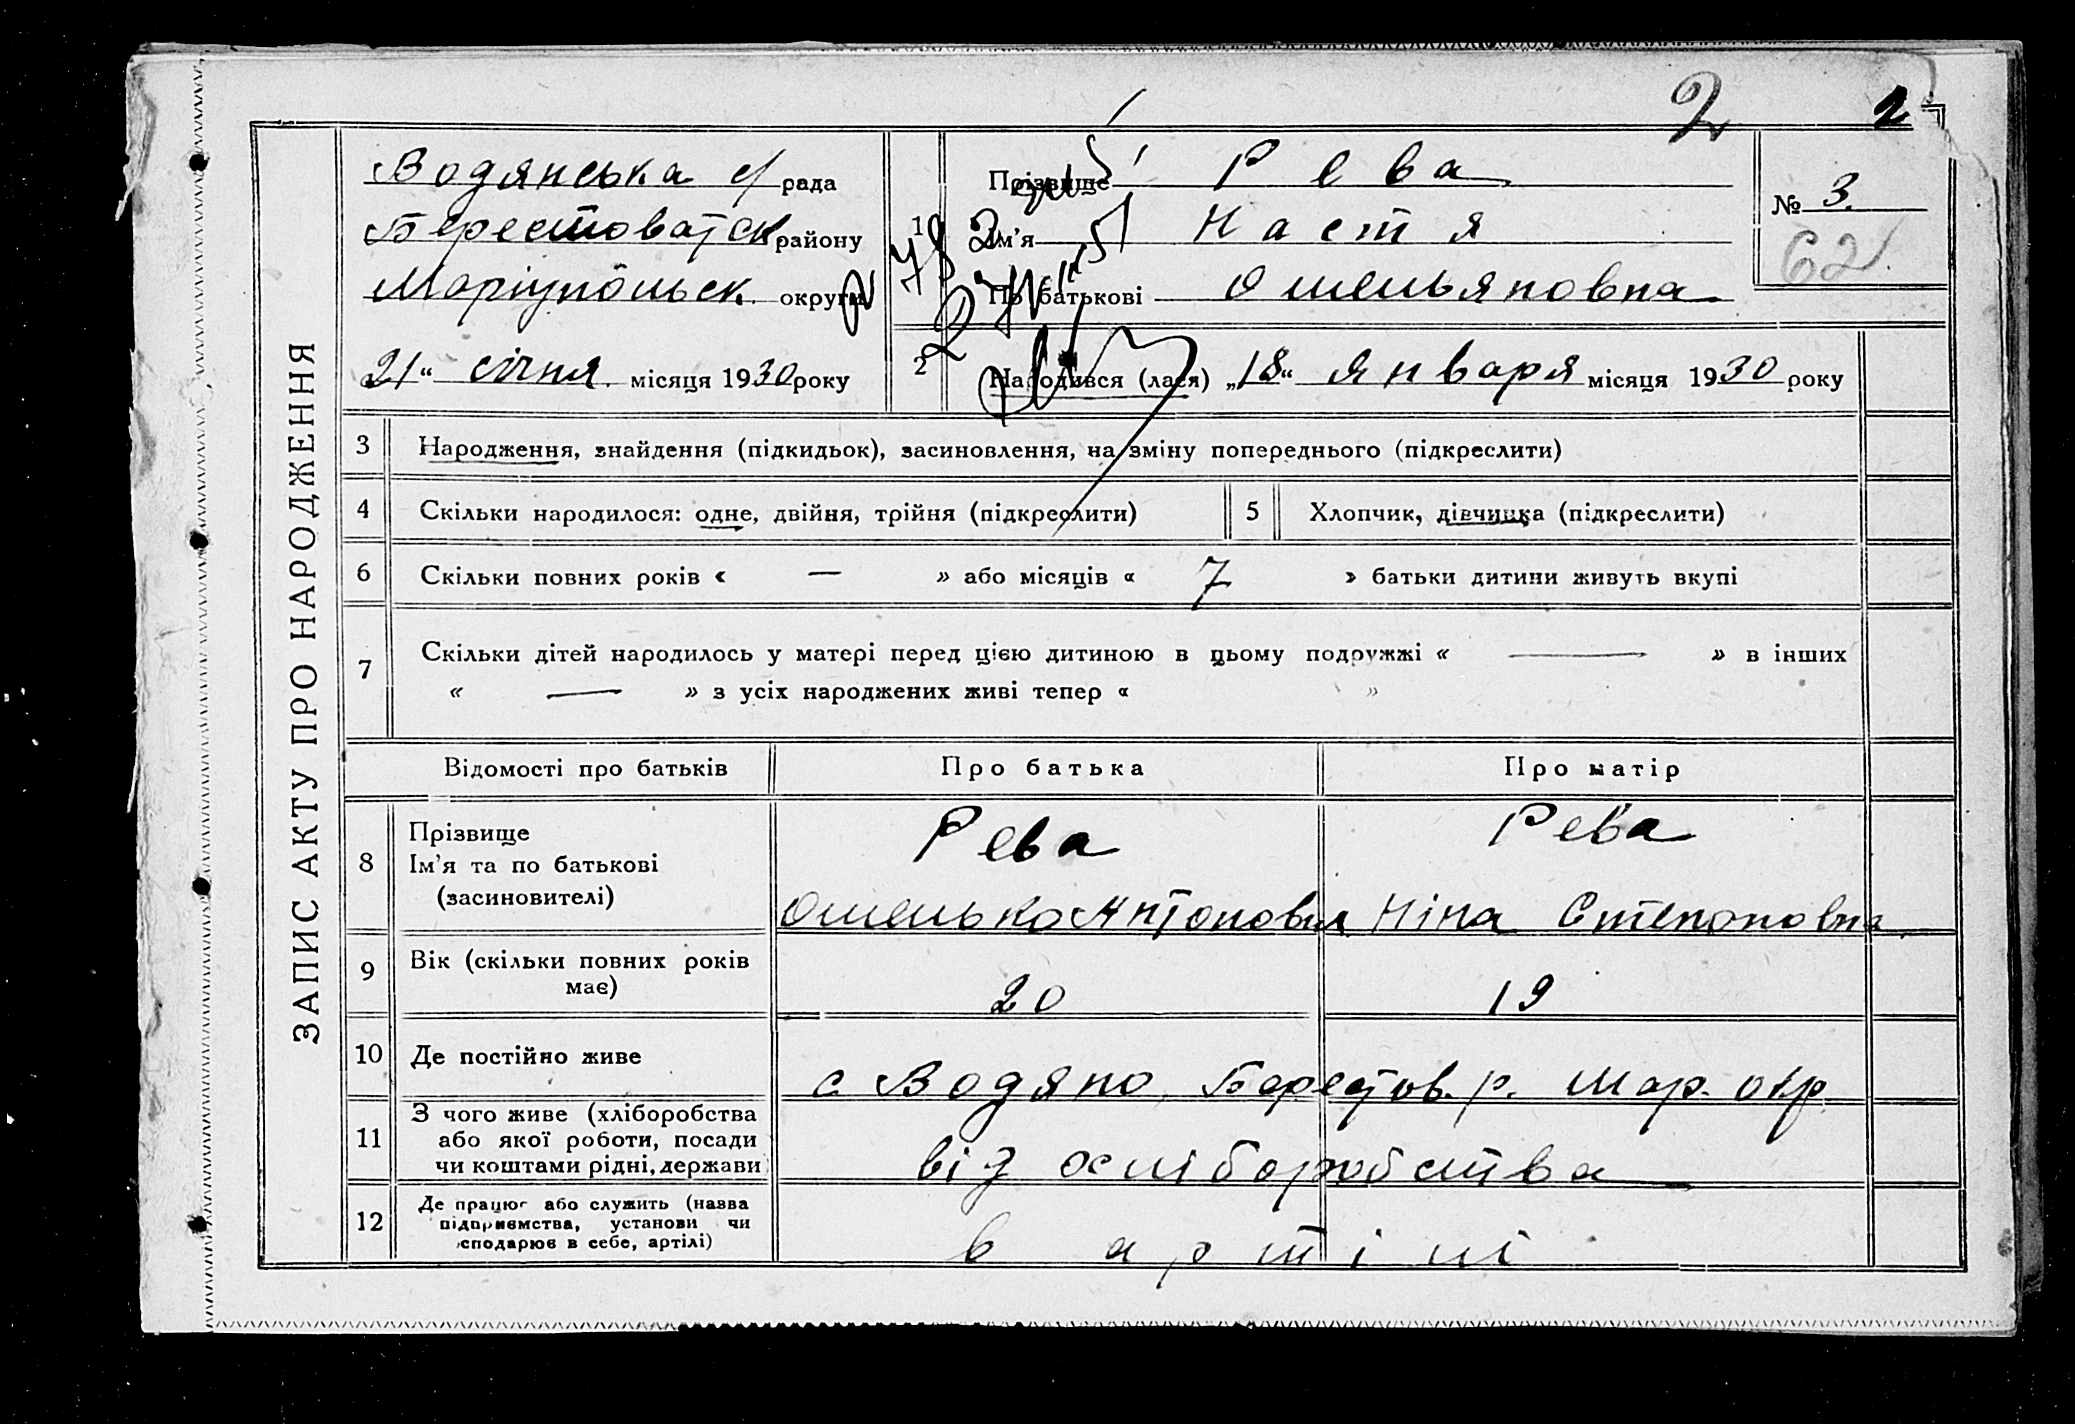 2 2
ЗАПИС АКТУ ПРО НАРОДЖЕННЯ
Водянська с/рада
Берестоватск району
Маріупольск. округи
21 “ січня місяця 1930 року
1 Прізвище Рева
Ім’я Настя
По батькові Омельяновна
№ 3.
62
2 Народився (лася) „18“ Января місяця 1930 року
3 Народження, знайдення (підкидьок), засиновлення, на зміну попереднього (підкреслити)
4 Скільки народилося: одне, двійня, трійня (підкреслити) 5 Хлопчик, дівчинка (підкреслити)
6 Скільки повних років « — » або місяців « 7 » батьки дитини живуть вкупі
7 Скільки дітей народилось у матері перед цією дитиною в цьому подружжі « — » в інших
« — » з усіх народжених живі тепер « »
Відомості про батьків Про батька Про матір
8 Прізвище Рева Рева
Ім’я та по батькові
(засиновителі) Омелько Антонович Ніна Степоновна
9 Вік (скільки повних років
має) 20 19
10 Де постійно живе с. Водяно, Берестов. р. Мар. окр
11 З чого живе (хліборобства
або якої роботи, посади
чи коштами рідні, держави від хліборобства
12 Де працює або служить (назва
підприємства, установи чи
сподарює в себе, артілі) в артілі